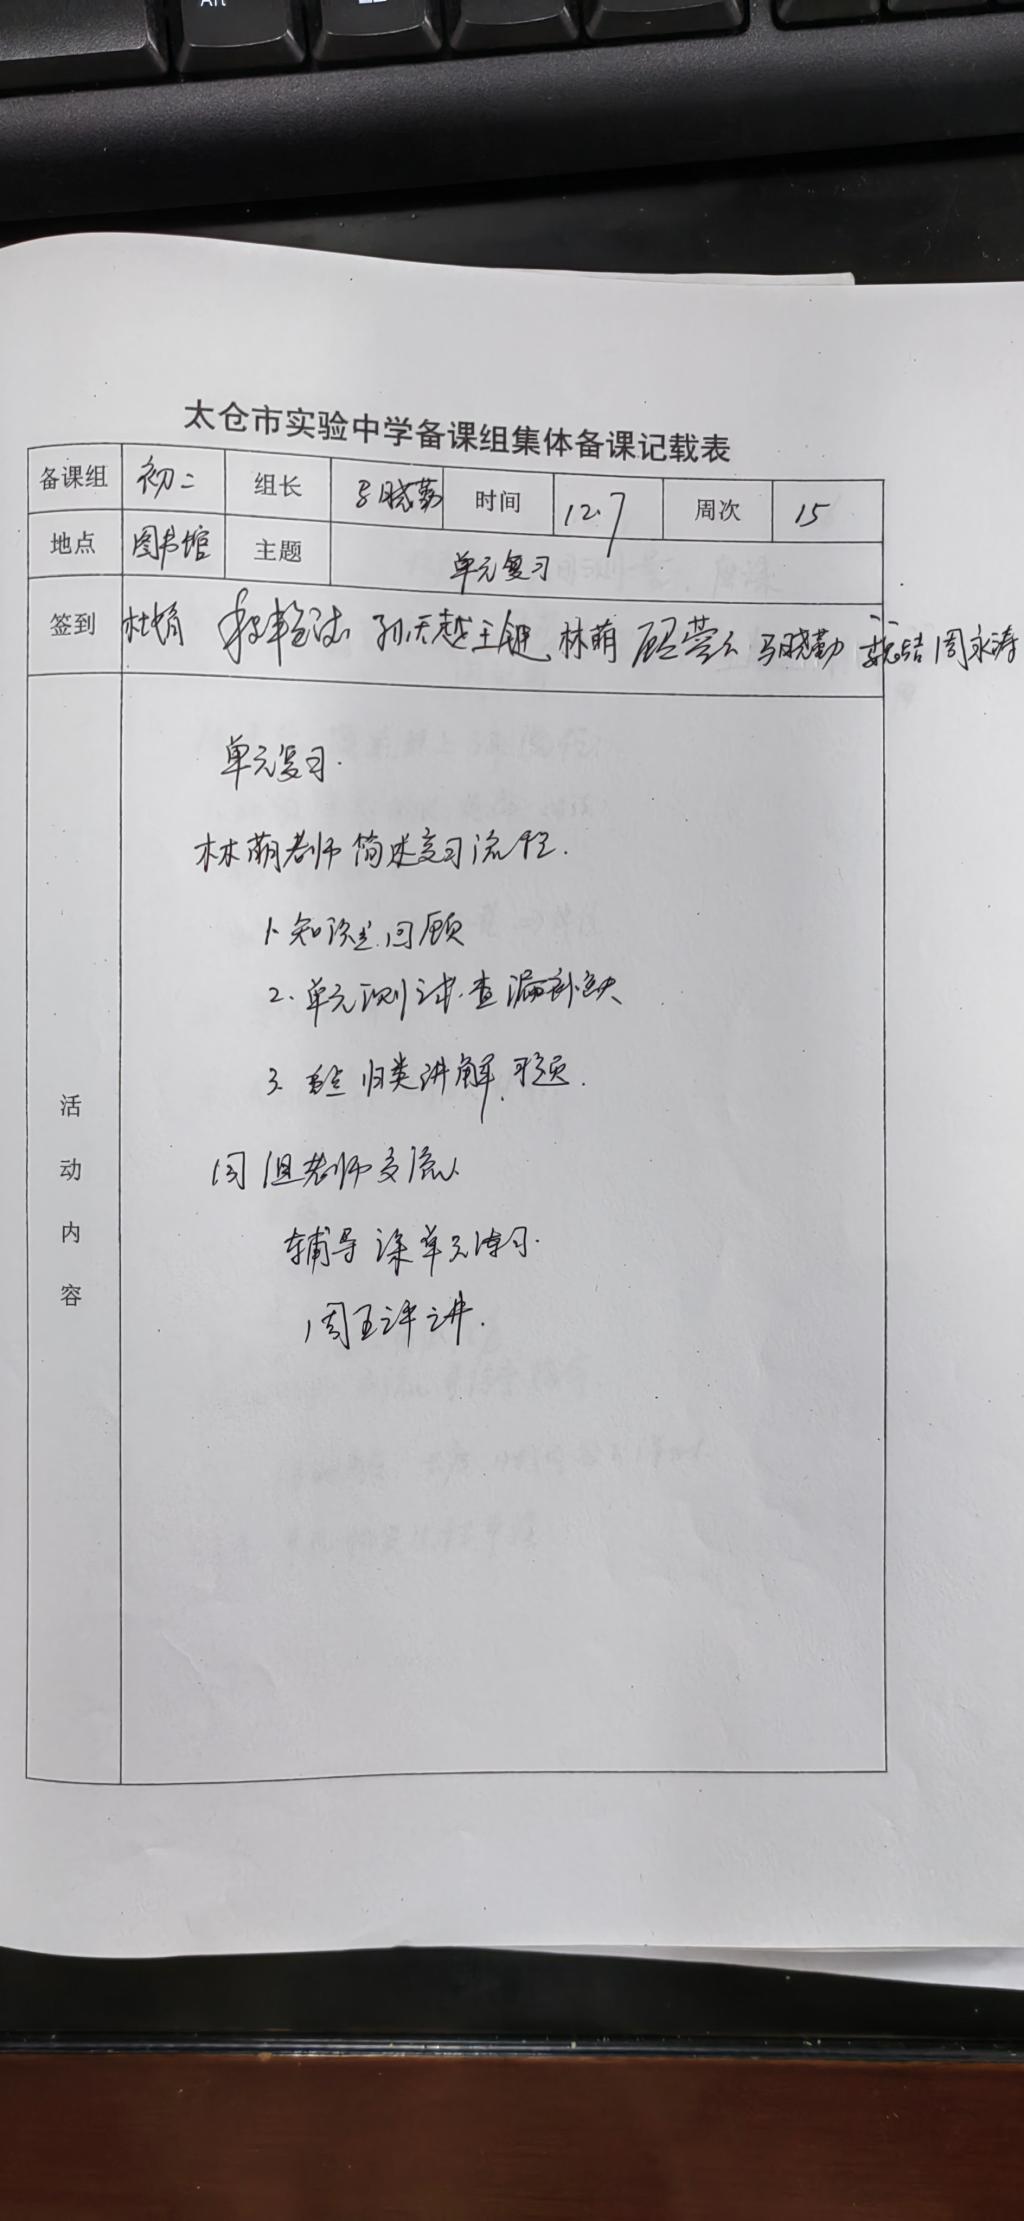 Alt
太仓市实验中学备课组集体备课记载表
备课组 初二 组长 马晓勤 时间 12.7 周次 15
地点 图书馆 主题 单元复习
签到 杜娟 孙天越 王键 林萌 马晓勤 周永涛
活动内容
单元复习.
林萌老师简述复习流程.
1. 知识点回顾
2. 单元测试.查漏补缺
3. 重点归类讲解.习题.
同组老师交流.
辅导课单元练习.
周五评讲.